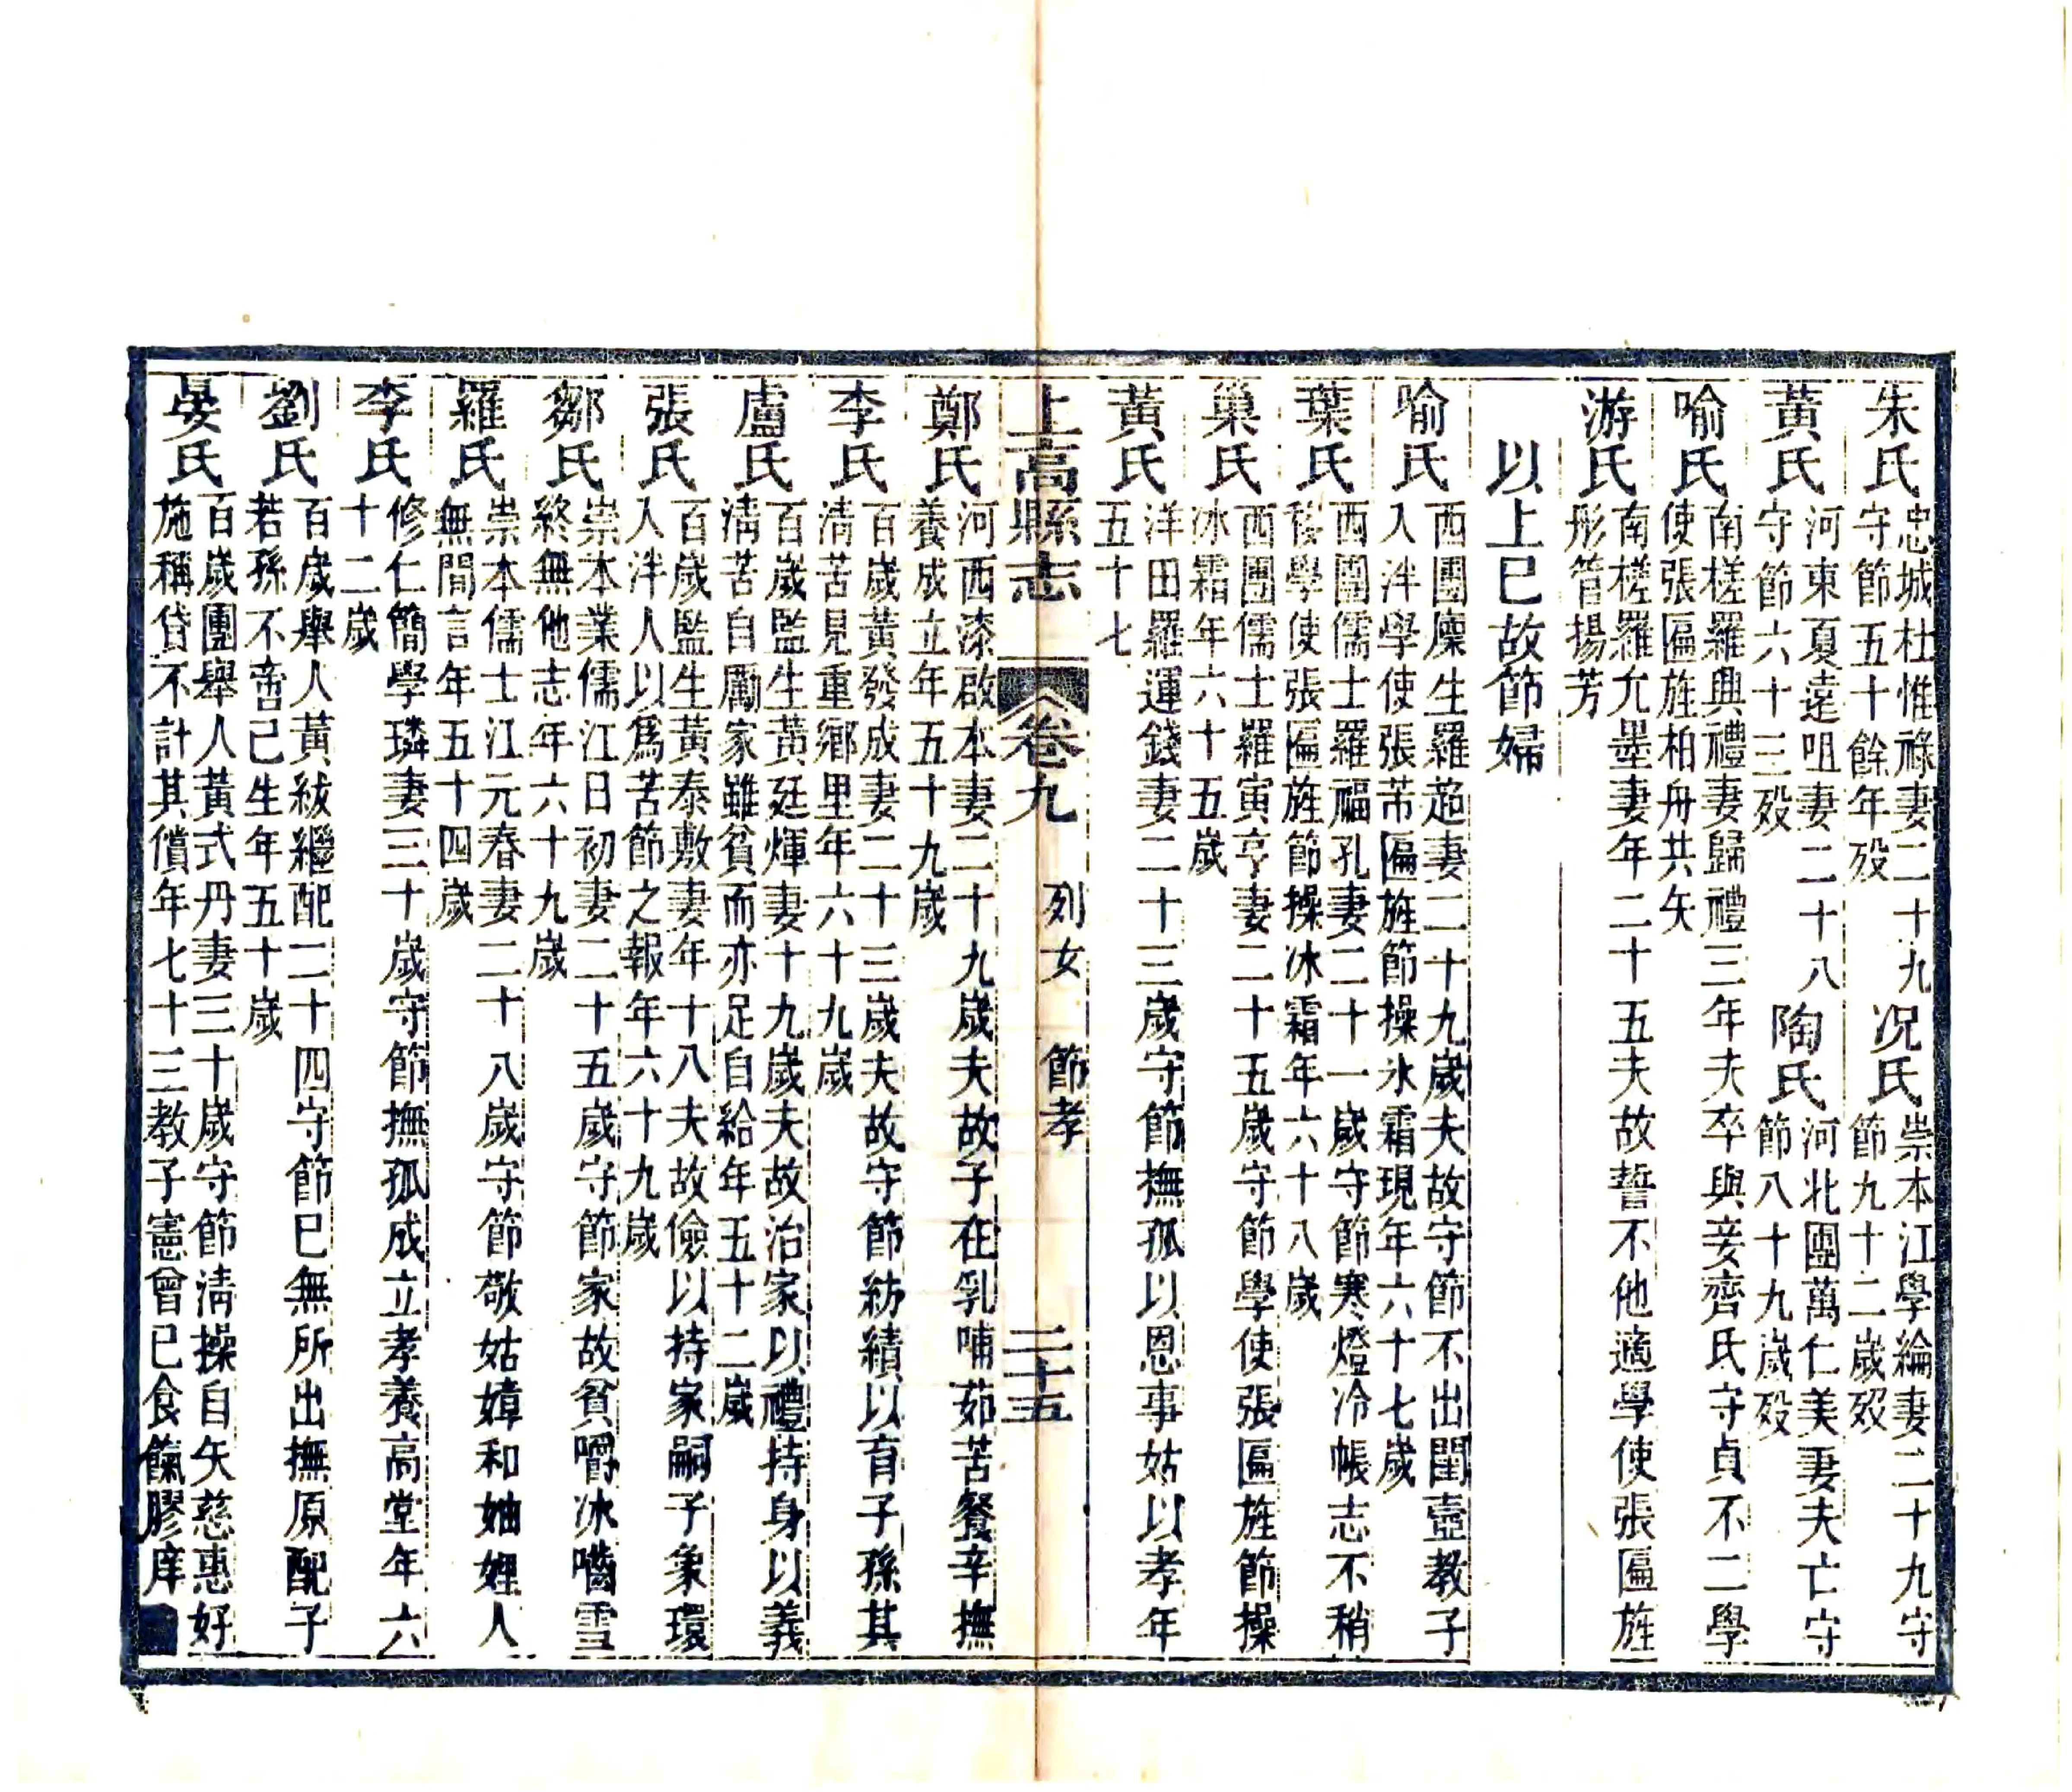 朱氏
忠城杜惟祿妻二十九
守節五十餘年歿
況氏
崇本江學綸妻二十九守
節九十二歲歿
黃氏
河東夏遠咀妻二十八
守節六十三歿
陶氏
河北團萬仁美妻夫亡守
節八十九歲歿
喻氏
南槎羅典禮妻歸禮三年夫卒與妾齊氏守貞不二學
使張匾旌柏舟共矢
游氏
南槎羅允墨妻年二十五夫故誓不他適學使張匾旌
彤管揚芳
以上已故節婦
喻氏
西團廩生羅茝妻二十九歲夫故守節不出閨壼教子
入泮學使張芾匾旌節操氷霜現年六十七歲
葉氏
西團儒士羅福孔妻二十一歲守節寒燈冷帳志不稍
移學使張匾旌節操冰霜年六十八歲
巢氏
西團儒士羅寅亨妻二十五歲守節學使張匾旌節操
冰霜年六十五歲
黃氏
洋田羅運錢妻二十三歲守節撫孤以恩事姑以孝年
五十七
上高縣志
卷九
列女
節孝
二十五
鄭氏
河西漆啟本妻二十九歲夫故子在乳哺茹苦餐辛撫
養成立年五十九歲
李氏
百歲黃發成妻二十三歲夫故守節紡績以育子孫其
清苦見重鄉里年六十九歲
盧氏
百歲監生黃廷煇妻十九歲夫故治家以禮持身以義
清苦自勵家雖貧而亦足自給年五十二歲
張氏
百歲監生黃泰敷妻年十八夫故儉以持家嗣子象環
入泮人以爲苦節之報年六十九歲
鄒氏
崇本業儒江日初妻二十五歲守節家故貧嚼冰嚙雪
終無他志年六十九歲
羅氏
崇本儒士江元春妻二十八歲守節敬姑嫜和妯娌人
無間言年五十四歲
李氏
修仁簡學璘妻三十歲守節撫孤成立孝養高堂年六
十二歲
劉氏
百歲舉人黃紱繼配二十四守節已無所出撫原配子
若孫不啻己生年五十歲
晏氏
百歲團舉人黃式丹妻三十歲守節清操自矢慈惠好
施稱貸不計其償年七十三教子憲曾已食餼膠庠